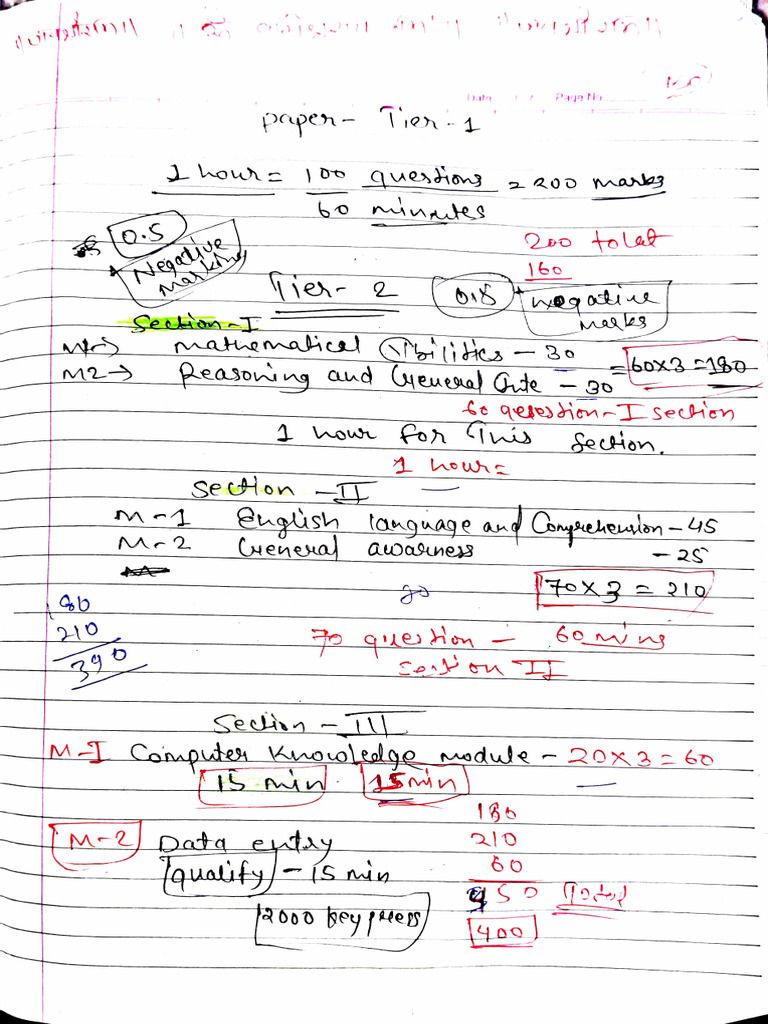 Date Page No
paper - Tier - 1
1 hour = 100 questions = 200 marks
60 minutes
0.5
Negative marking
200 total
160
Tier - 2
negative marks
Section - I
M1 → mathematical Abilities - 30
M2 → Reasoning and General Inte - 30
= 60 x 3 = 180
60 question - I section
1 hour for This Section.
1 hour =
Section - II
M - 1 English language and Comprehension - 45
M - 2 General awarness - 25
70 x 3 = 210
180
210
390
70 question - 60 mins
section II
Section - III
M - I Computer Knowledge module - 20 x 3 = 60
15 min 15 min
M - 2 Data entry
qualify - 15 min
2000 key press
180
210
60
450 Total
400